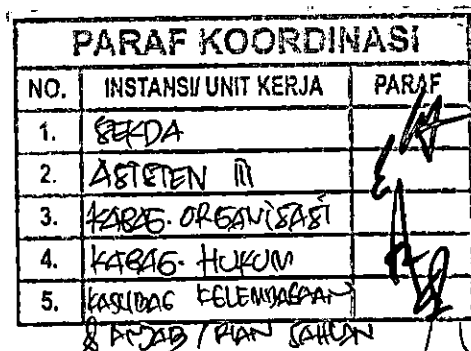 PARAF KOORDINASI
NO. INSTANSI/ UNIT KERJA PARAF
1. SEKDA
2. ASISTEN III
3. KABAG. ORGANISASI
4. KABAG. HUKUM
5. KASUBAG KELEMBAGAAN
& ANJAB